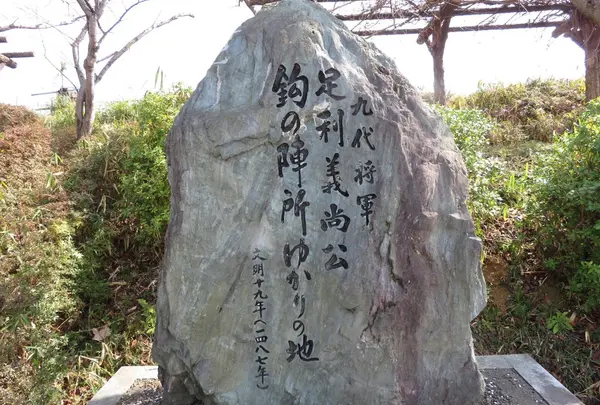 九代将軍
足利義尚公
鈎の陣所ゆかりの地
文明十九年（一四八七年）